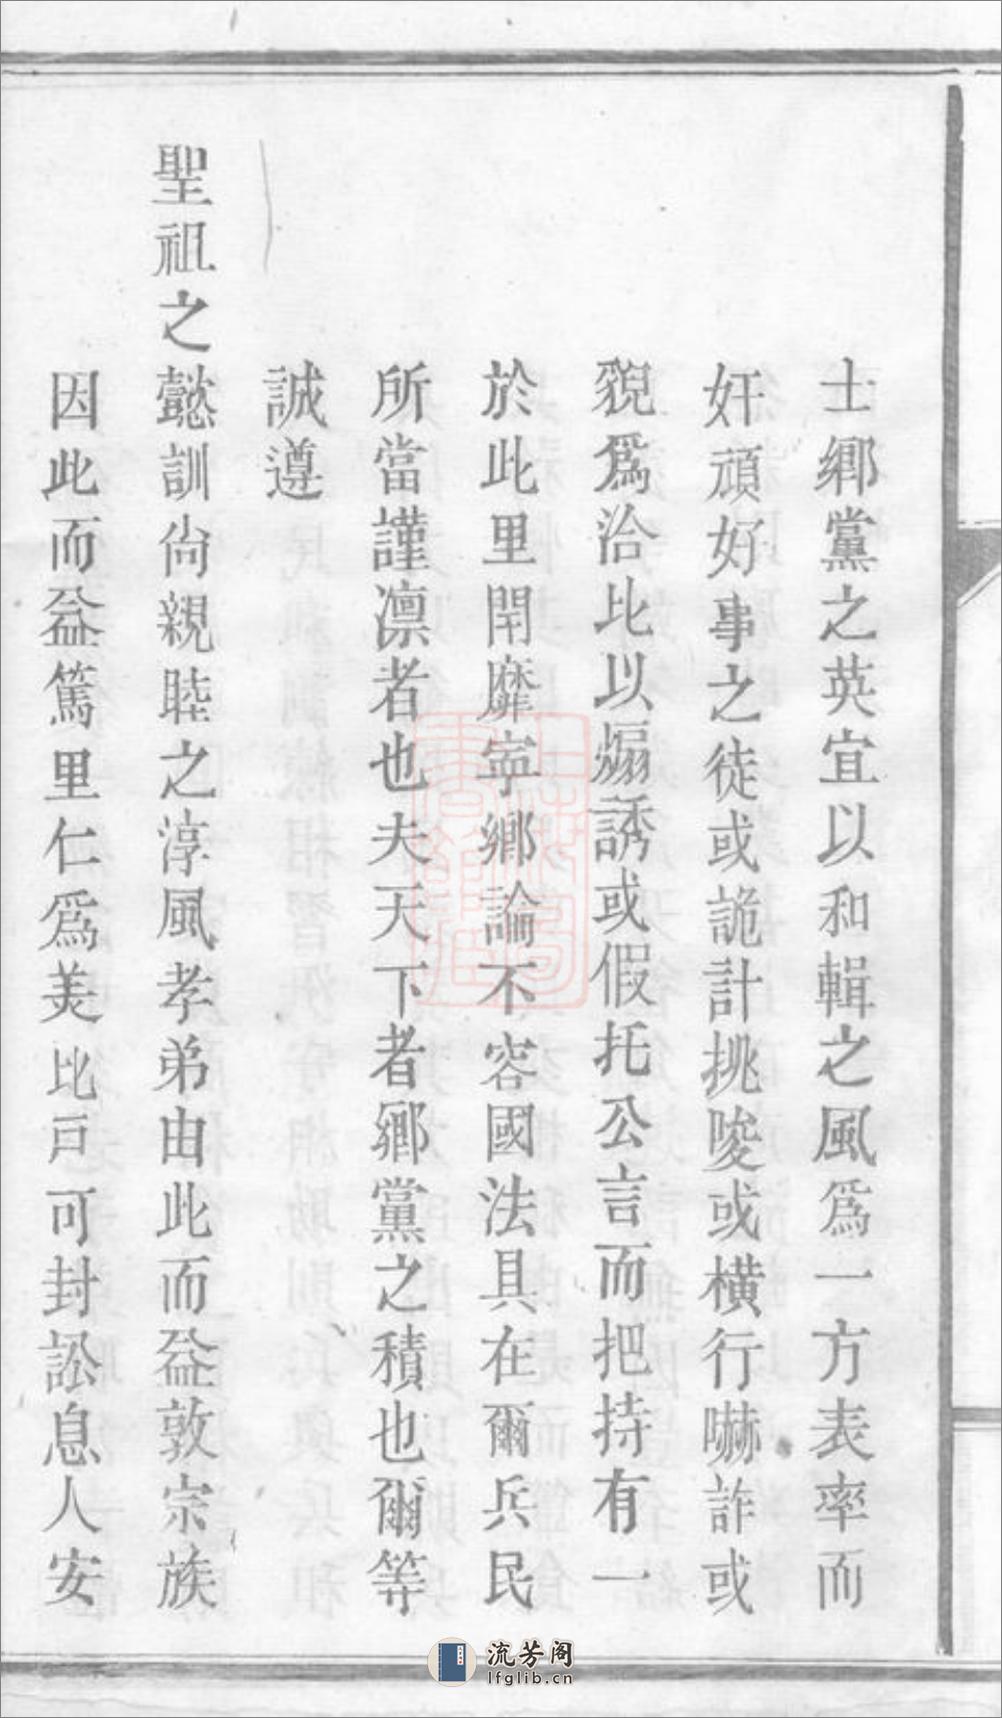 士鄉黨之英宜以和輯之風爲一方表率而
奸頑好事之徒或詭計挑唆或橫行嚇詐或
貌爲洽比以煽誘或假托公言而把持有一
於此里閈靡寧鄉論不容國法具在爾兵民
所當謹凛者也夫天下者鄉黨之積也爾等
誠遵
聖祖之懿訓尙親睦之淳風孝弟由此而益敦宗族
因此而益篤里仁爲美比戸可封訟息人安
流芳阁
lfglib.cn